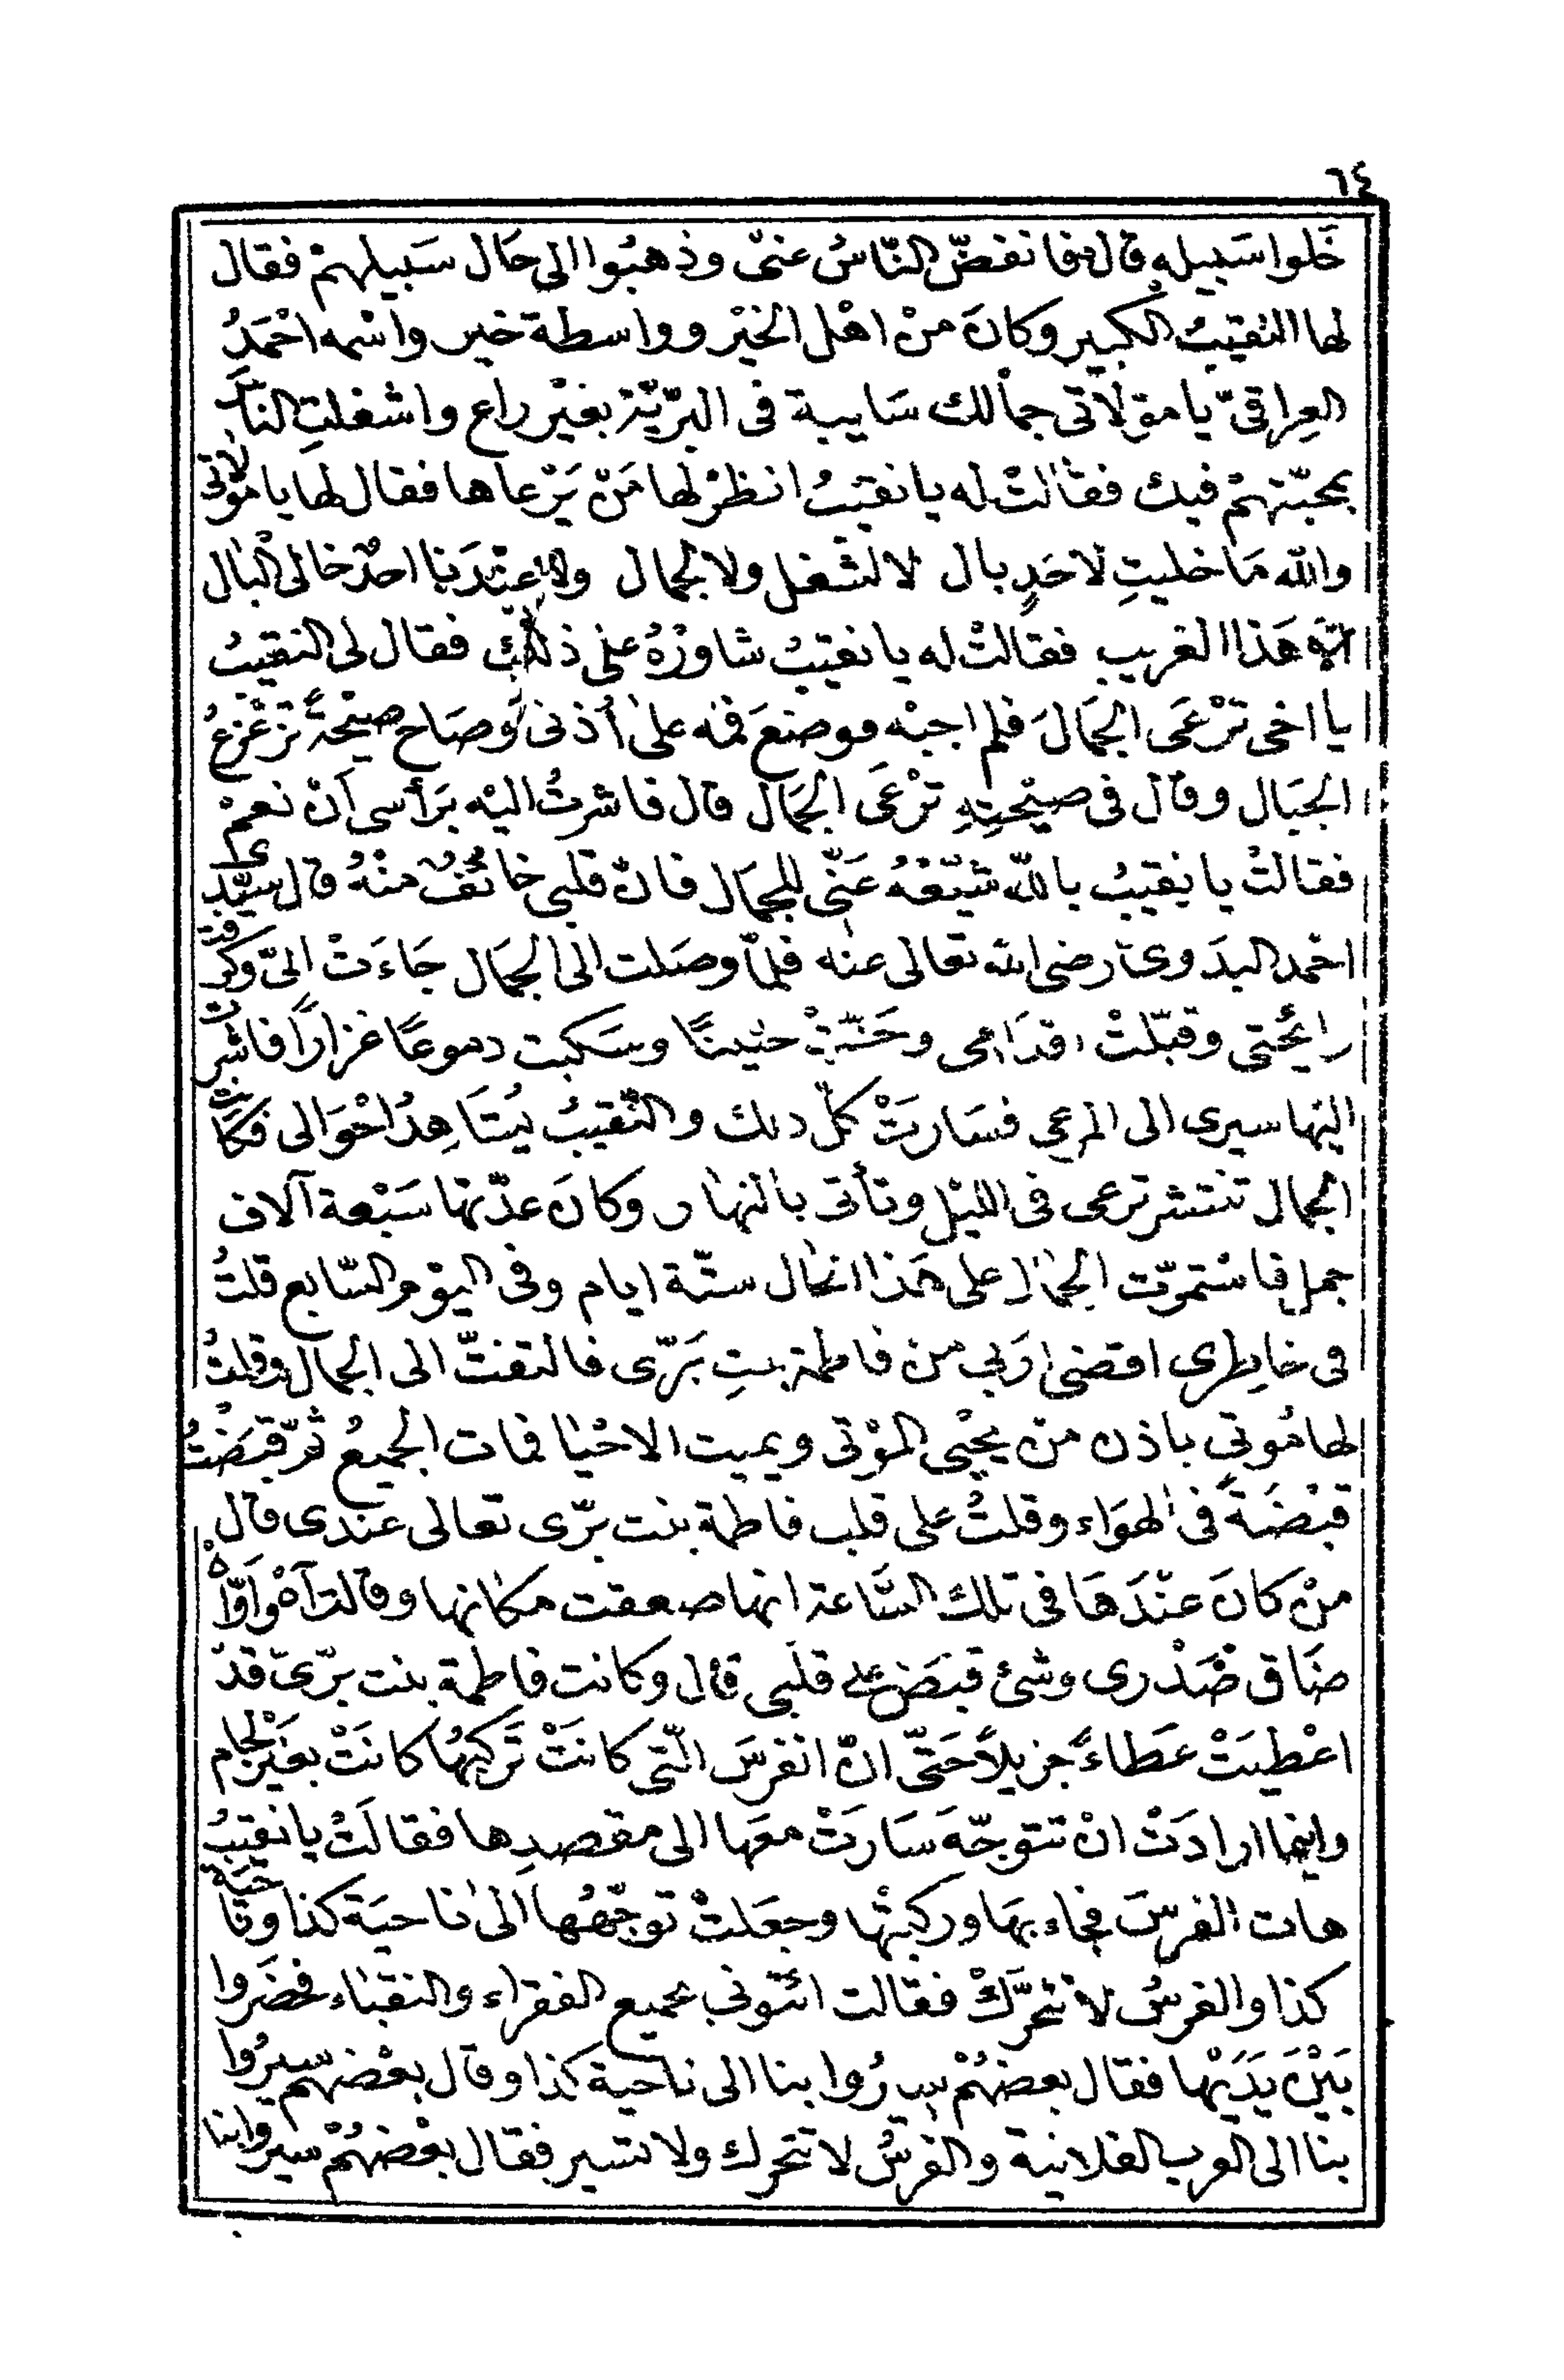 ٦٤
خَلوا سَبيله قال فانفضّ النّاسُ عنّى وذهبُوا الى حَال سَبيلهمْ فقال
لها النقيبُ الكبير وكانَ منْ اهْل الخيْر وواسطة خير واسْمه احْمَدُ
العِراقىّ يا موْلاتى جمالك سَايبة فى البرّيّة بغيْر راع واشغلتِ النّاسَ
بمحبّتهمْ فيك فقالتْ له يا نقيبُ انظرْ لها مَنْ يَرْعاها فقال لها يا موْلاتى
والله مَا خليتِ لاحَدٍ بال لا لشغل ولا لجمال ولا عنْدَنا احدٌ خالى البال
الا هَذا الغريب فقالتْ له يا نقيبُ شاورْهُ على ذلك فقال لى النقيبُ
يا اخى ترْعَى الجمَالَ فلم اجبْه فوضعَ فمه على أذنى وصَاح صيْحةً تزعْزعُ
الجبَال وقال فى صيْحتِهِ ترْعَى الجمَال قال فاشرتُ اليْه بَرأسى اَنْ نعمْ
فقالتْ يا نقيبُ بالله شيّعْهُ عَنّى للجمَال فانّ قلبى خائفٌ منْهُ قال سيّدى
احْمد البدَوىّ رضى الله تعالى عنْه فلمّا وصَلت الى الجمَال جَاءَتْ الىّ وكرفت
رائحتى وقبّلتْ اقدَامى وحَنّتْ حنينًا وسَكبت دموعًا غزارًا فاشرت
اليْها سيرى الى المرعى فسَارتْ كلّ ذلك والنّقيبُ يُشَاهدُ احْوَالى فكانَت
الجمال تنتشر ترعى فى الليْل وتأتى بالنهار وكانَ عدّتها سَبْعة آلاف
جمل فاسْتمرّت الجمال على هَذا الحال ستّة ايام وفى اليوْم السّابع قلتُ
فى خاطِرى اقضى اربى من فاطمة بنتِ بَرّى فالتفتّ الى الجمال وقلتُ
لها مُوتى باذن منْ يحْيى الموْتى ويميت الاحْيا فمات الجميعُ ثمّ قبَضْتُ
قبْضَةً فى الهوَاء وقلتُ على قلب فاطمة بنت برّى تعالى عندى قال
منْ كانَ عنْدَهَا فى تلك السَّاعة انها صعقت مكانها وقالت آهْ وَاوّاهْ
ضَاق صَدْرى وشئ قبَضَ على قلبى قال وكانت فاطمة بنت برّىّ قدْ
اعْطيَتْ عَطاءً جزيلاً حَتّى انّ الفرسَ الّتى كانَتْ تَركبُها كانَتْ بغيْر لجام
واينما ارادَتْ انْ تتوجّهَ سَارَتْ معَها الى مقصدِها فقالَتْ يا نقيبُ
هات الفرسَ فجاء بهَا وركبتْها وجعَلتْ توجّهُها الى ناحيَة كذا وناحيَة
كذا والفرسُ لا تتحرَّكْ فقالت ائتونى بجميع الفقراء والنقباء فحضَروا
بَيْنَ يَدَيْها فقال بعضهُمْ سيرُوا بنا الى ناحية كذا وقال بعْضهم سيرُوا
بنا الى العرب الفلانية والفرسُ لا تتحرك ولا تسير فقال بعْضهُمْ سيروا بنا